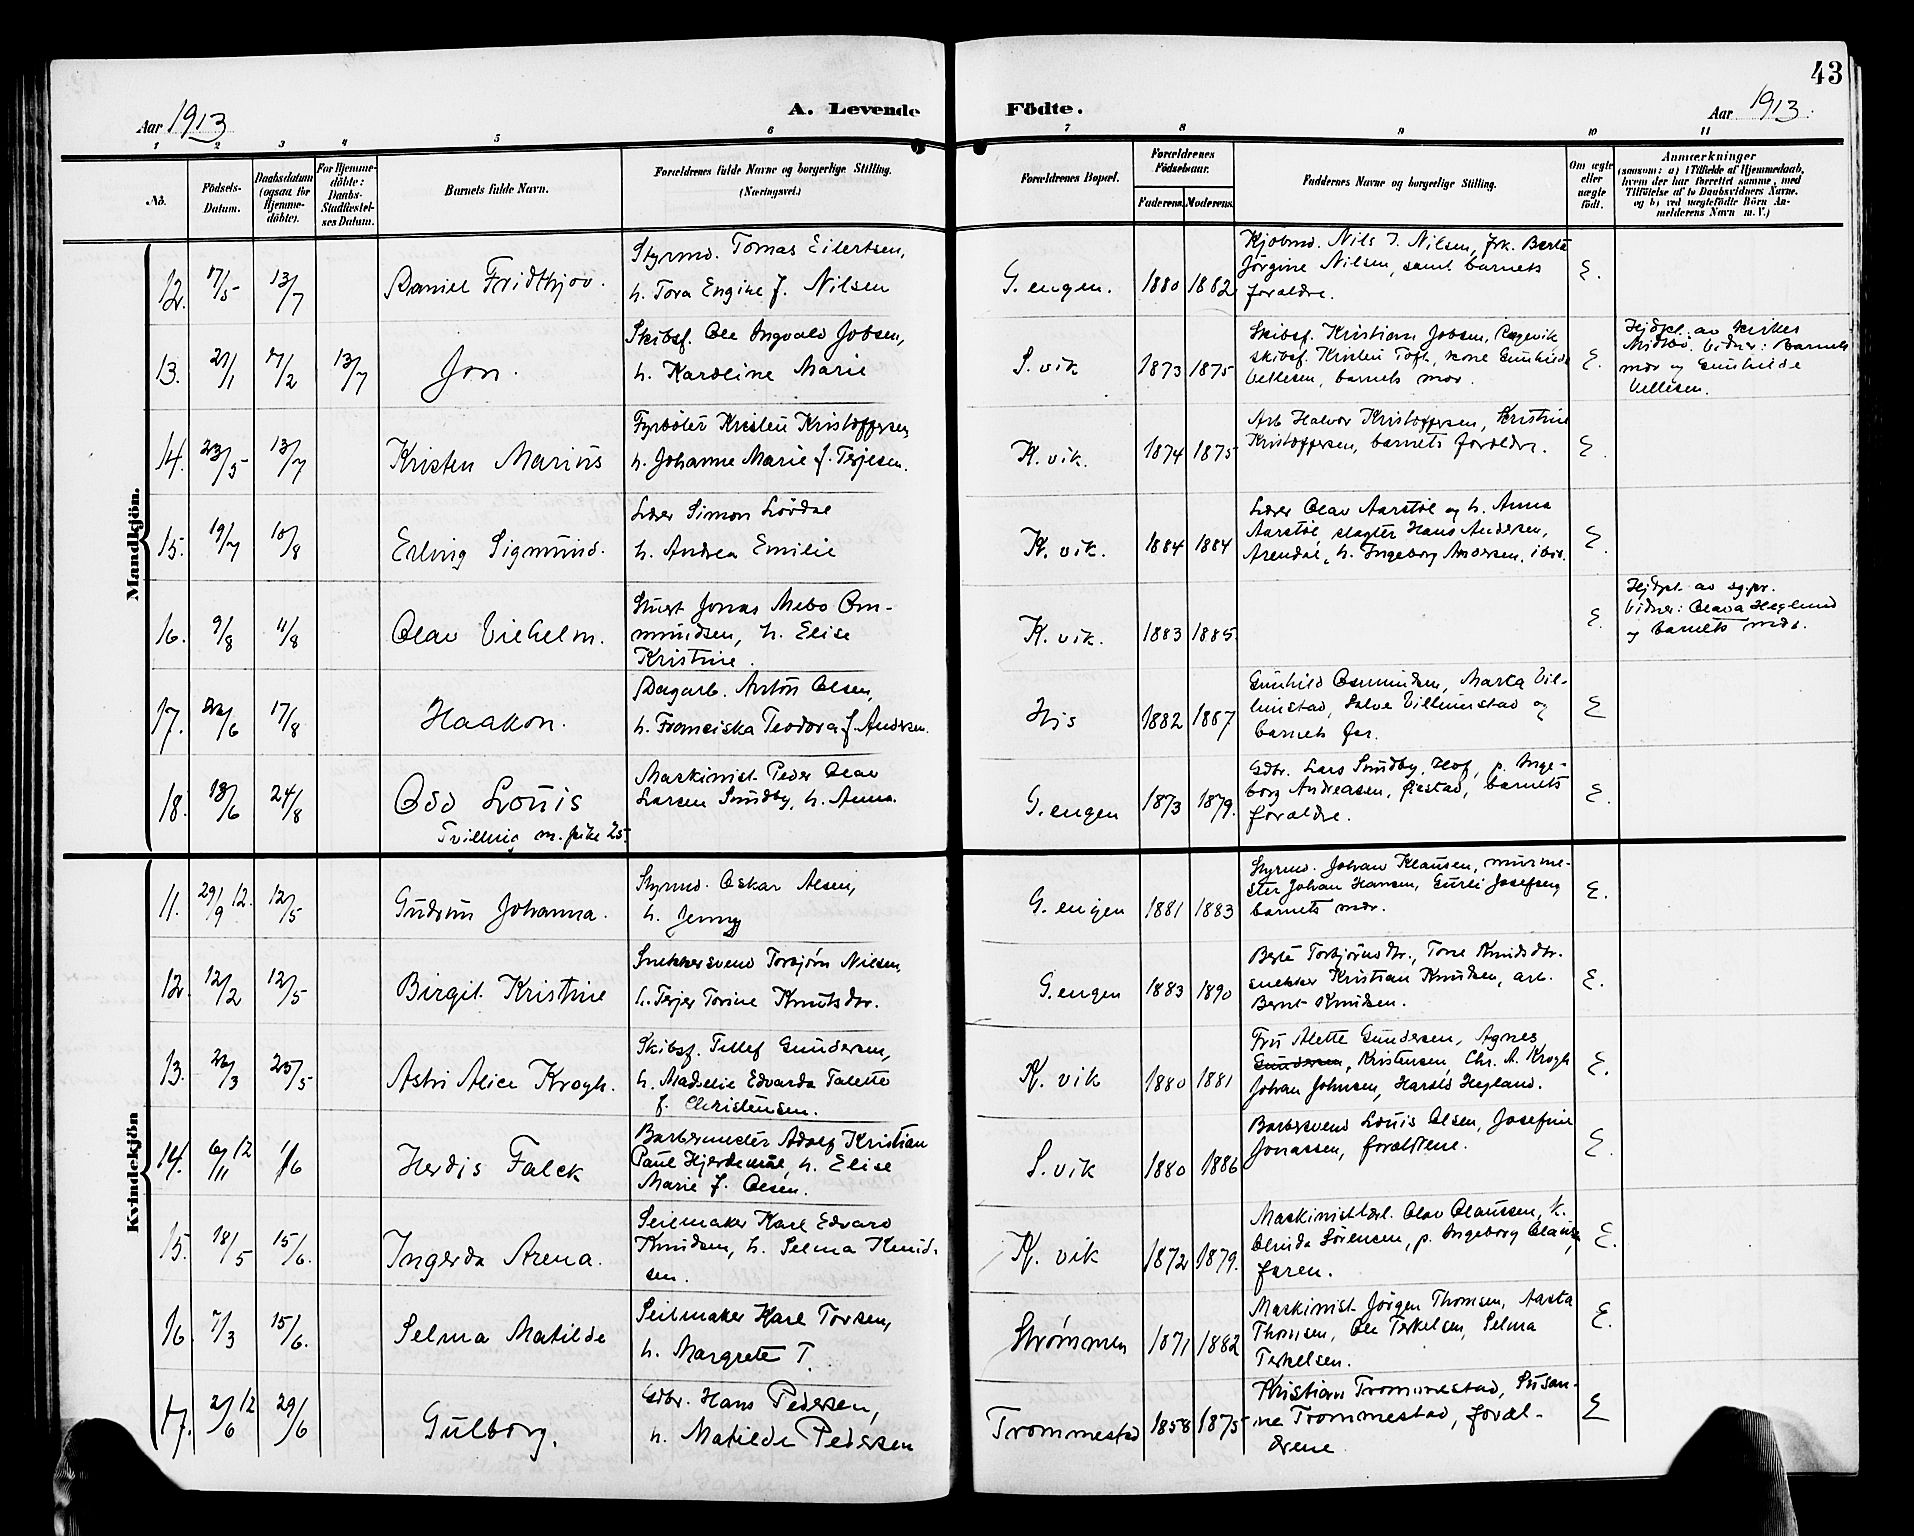 43
Aar 1913
A. Levende Födte.
Aar 1913.
1 2 3 4 5 6 7 8 9 10 11
No.
Födsels-Datum.
Daabsdatum (ogsaa for Hjemme-döbte).
For Hjemme-döbte: Daabs-Stadfæstel-ses Datum.
Barnets fulde Navn.
Forældrenes fulde Navne og borgerlige Stilling. (Næringsvei.)
Forældrenes Bopæl.
Forældrenes Födselsaar.
Faderens. Moderens.
Faddernes Navne og borgerlige Stilling.
Om ægte eller uægte födt.
Anmærkninger
(saasom: a) i Tilfælde af Hjemmedaab, hvem der har forrettet samme, med Tilföielse af to Daabsvidners Navne, og b) ved uægtefödte Börn An-melderens Navn m. V.)
Mandkjön.
12. 17/5 13/7 Daniel Fridthjov.
Styrmd. Tomas Eilertsen,
h. Tora Engine f. Nilsen
G. engen. 1880 1882
Kjøbmd. Nils J. Nilsen, frk. Berte
Jörgine Nilsen, samt barnets
forældre.
E.
13. 21/1 17/2 13/7 Jon.
Skibsf. Ole Ingvald Jobsen,
h. Karoline Marie
S. vik 1873 1875
Skibsf. Kristian Jobsen, Rægevik,
skibsf. Kristen Toft, kone Gunhilde
Vellesen, barnets mor.
E.
Hjdpt. av kirkes.
Midtbö. Vidner: barnets
mor og Gunhilde
Vellesen.
14. 23/5 13/7 Kristen Marius
Fyrböter Kristen Kristoffersen,
h. Johanne Marie f. Terjesen.
K. vik. 1874 1875
Arb. Halvor Kristoffersen, Kristine
Kristoffersen, barnets forældre.
E.
15. 19/7 10/8 Erling Sigmund.
Lærer Simon Lövdal
h. Andrea Emilie
K. vik. 1884 1884
Lærer Olav Aarstöl og h. Anna
Aarstöl, slagter Hans Andersen,
Arendal, h. Ingeborg Andersen, ibid.
E.
16. 9/8 11/8 Olav Vilhelm.
Stuert Jonas Mebo Om-
mundsen, h. Elise
Kristine.
K. vik. 1883 1885.
E.
Hjdpt. av sg.pr.
Vidner: Olava Heglund
og barnets mor.
17. 22/6 17/8 Haakon.
Dagarb. Anton Olsen,
h. Franciska Teodora f. Andersen.
His 1882 1887
Gunhild Osmundsen, Marta Vil-
limstad, Salve Villimstad og
barnets far.
E
18. 18/6 24/8 Odd Louis
Tvilling m. pike 25.
Maskinist Peder Olav
Larsen Sundby, h. Anna
G. engen 1873 1879.
Gdbr. Lars Sundby, Hof, p. Inge-
borg Andreasen, Öiestad, barnets
forældre.
E.
Kvindekjön
11. 29/9 12. 12/5 Gudrun Johanna.
Styrmd. Oskar Olsen,
h. Jenny
G. engen 1881 1883
Styrmd. Johan Klausen, murme-
ster Johan Hansen, Gurli Josefsen,
barnets mor.
E.
12. 12/2 12/5 Birgit Kristine
Snekkersvend Torbjörn Nilsen,
h. Terjer Torine Knutsdtr.
G. engen 1883 1890
Berte Torbjörnsdtr., Tone Knudsdtr.
snekker Kristian Knudsen, arb.
Bernt Knudsen.
E.
13. 22/3 25/5 Astri Alice Krogh.
Skibsf. Tellef Gundersen,
h. Madselie Edvarda Talette
f. Christensen.
K. vik 1880 1881
Fru Alette Gundersen, Agnes
Gundersen, Kristensen, Chr. A. Krogh
Johan Johnsen, Harald Hegland.
E.
14. 6/11 12 1/6 Herdis Falck
Barbermester Adolf Kristian
Paul Hjerdemaal, h. Elise
Marie f. Olsen.
S. vik 1880 1886
Barbersvend Louis Olsen, Josefine
Jonassen, forældrene.
E.
15. 18/5 15/6. Ingerda Arena.
Seilmaker Karl Edvard
Knudsen, h. Selma Knud-
sen.
K. vik 1872 1879.
Maskinistlærl. Olav Olaussen, k.
Olinda Sörensen, p. Ingeborg Olaus,
faren.
E.
16. 7/3 15/6. Selma Matilde
Seilmaker Karl Torsen,
h. Margrete T.
Strømmen 1871 1882
Maskinist Jörgen Thomsen, Aasta
Thomsen, Ole Terkelsen, Selma
Terkelsen.
E.
17. 2/6 12 29/6 Gulborg.
Gdbr. Hans Pedersen,
h. Matilde Pedersen
Trommestad 1858 1875
Kristian Trommestad, Susan-
ne Trommestad, foræl-
drene.
E